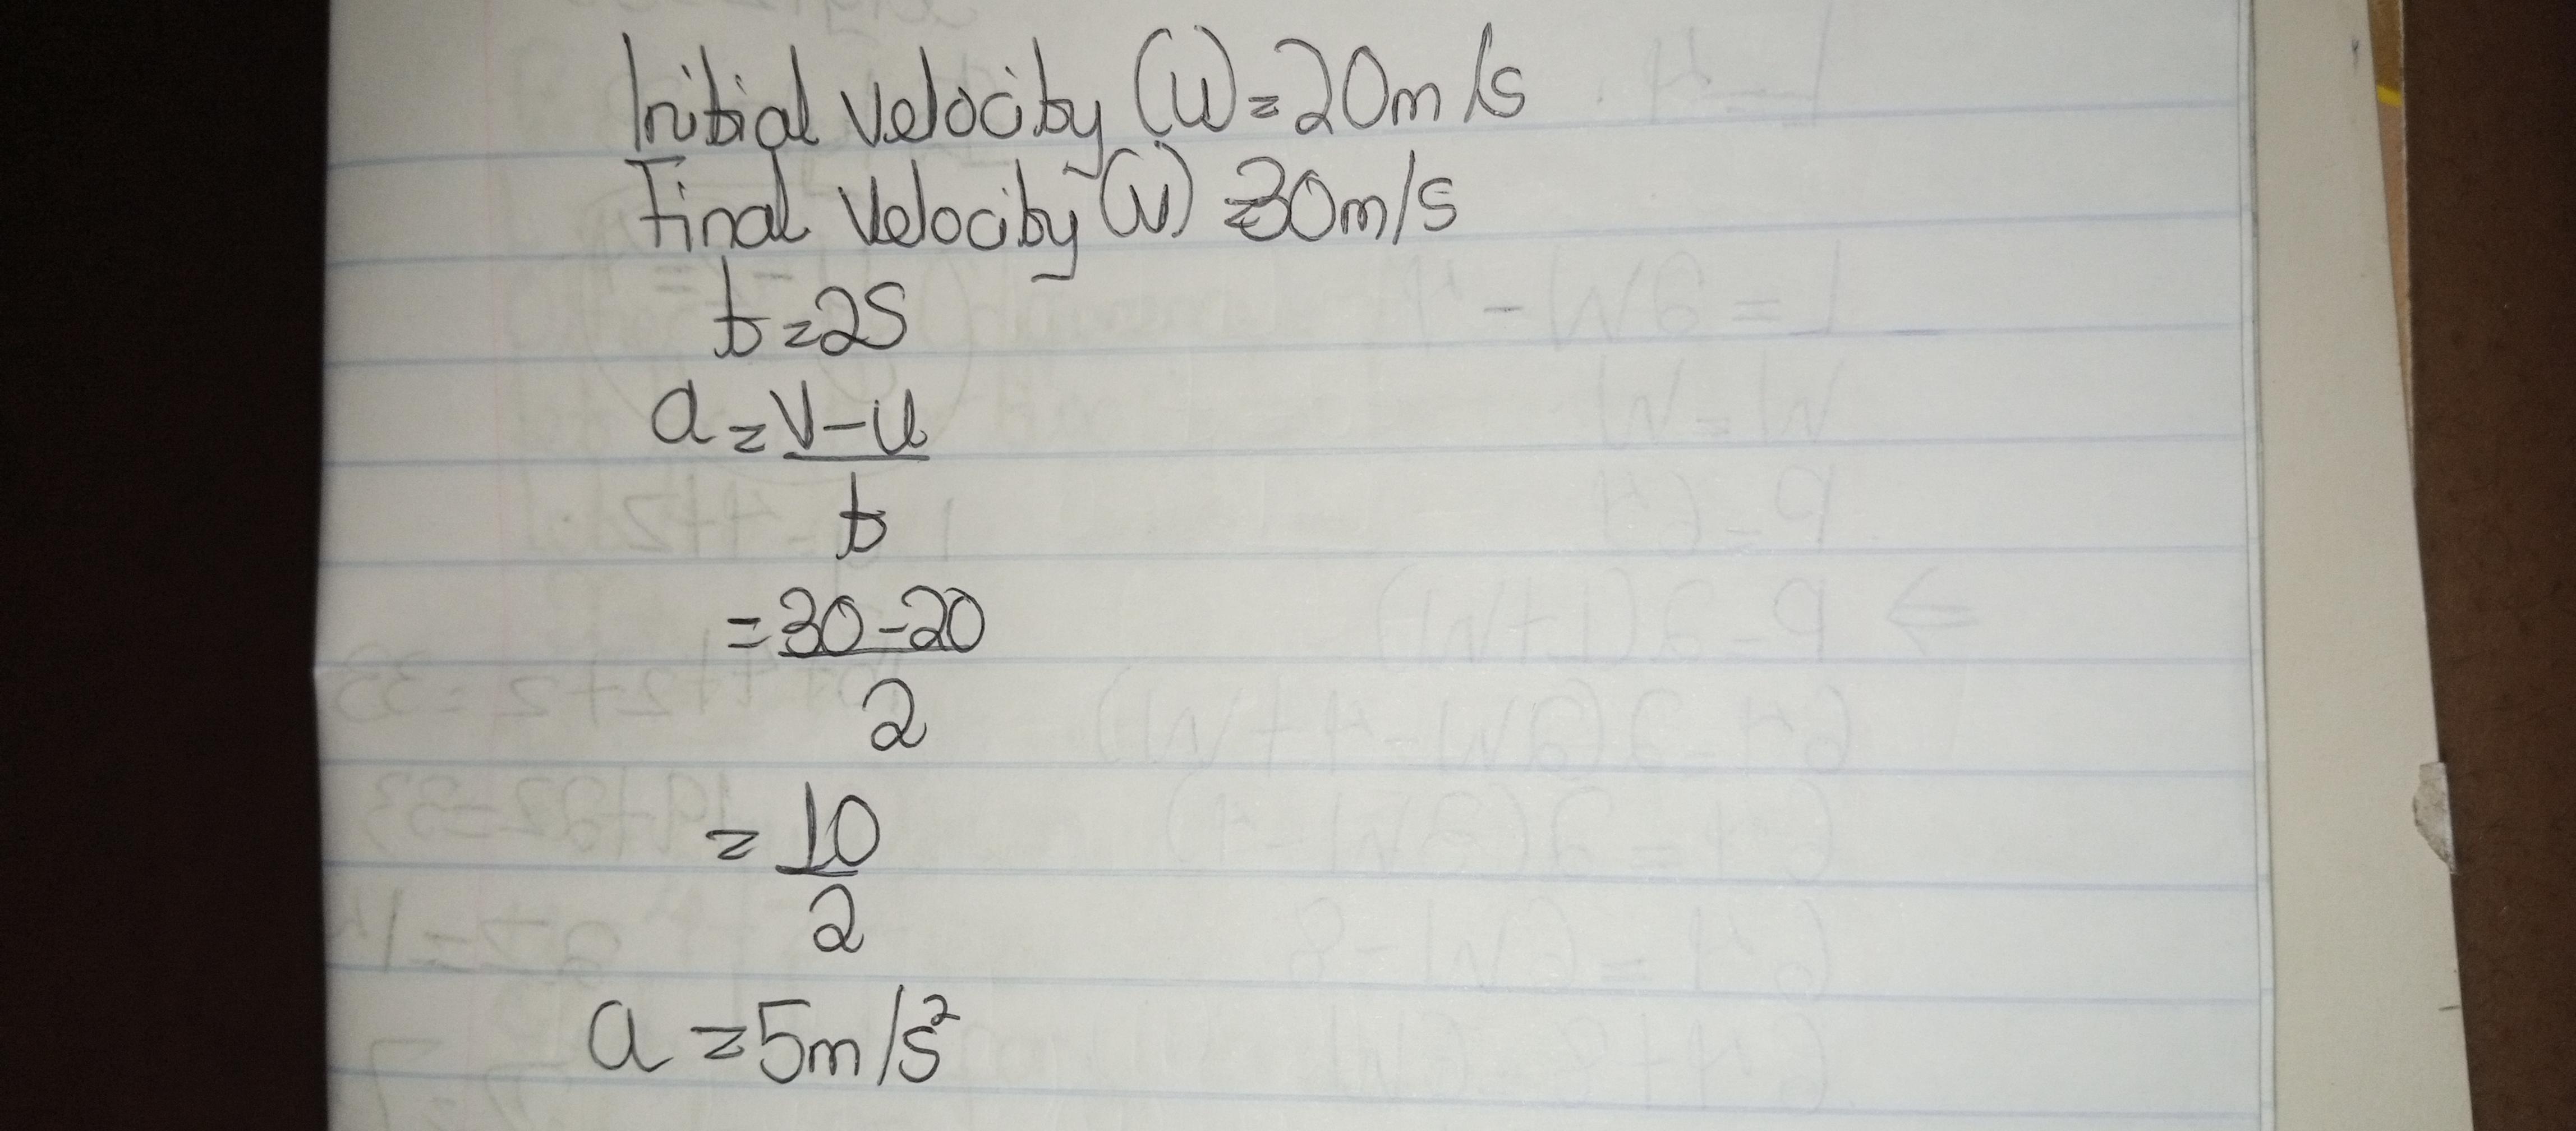 Initial velocity (u) = 20m/s
Final velocity (v) = 30m/s
t = 2s
a = v-u
t
= 30-20
2
= 10
2
a = 5m/s²